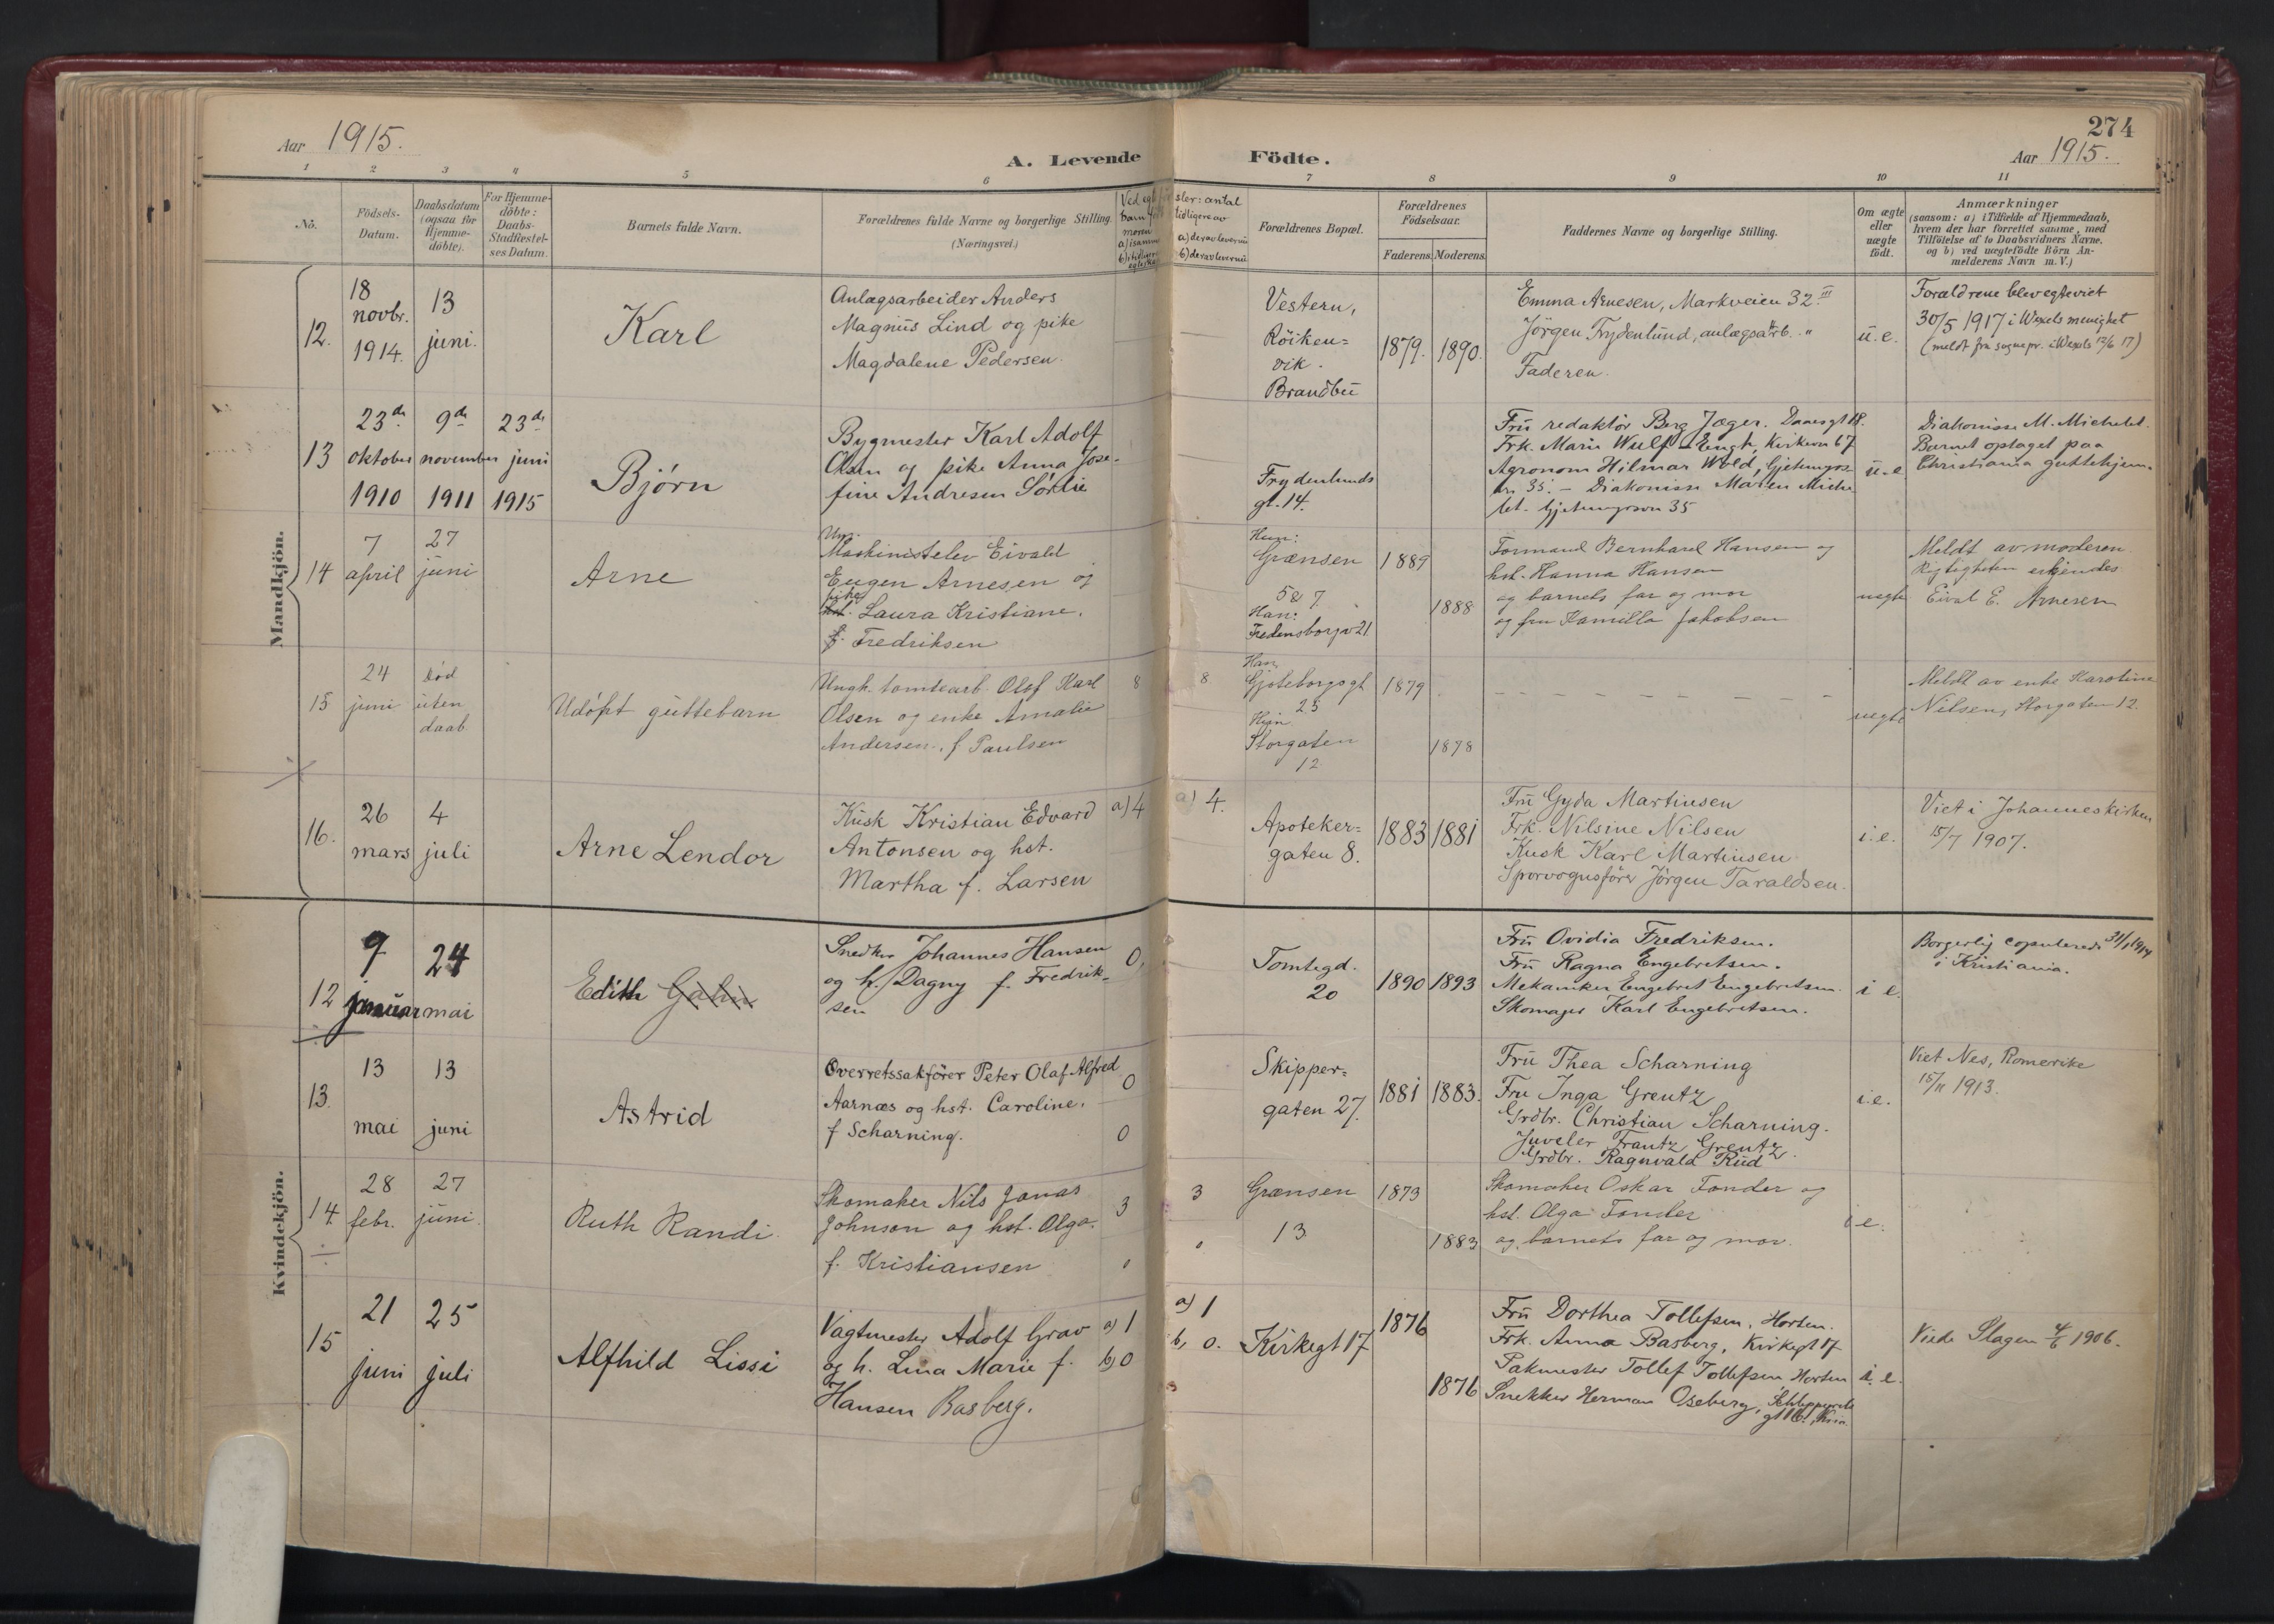 274
Aar 1915.
A. Levende Födte.
Aar 1915.
1 2 3 4 5 6 7 8 9 10 11
No.
Födsels-Datum.
Daabsdatum (ogsaa för Hjemme-döbte).
For Hjemme-döbte: Daabs-Stadfæstel-ses Datum.
Barnets fulde Navn.
Forældrenes fulde Navne og borgerlige Stilling.
(Næringsvei.)
Forældrenes Bopæl.
Forældrenes Födselsaar.
Faderens. Moderens.
Faddernes Navne og borgerlige Stilling.
Om ægte eller uægte födt.
Anmærkninger
(saasom: a) i Tilfælde af Hjemmedaab,
hvem der har forrettet samme, med
Tilföielse af to Daabsvidners Navne,
og b) ved uægtefödte Börn An-
melderens Navn m. V.)
Mandkjön.
12.
18 novbr. 1914.
13 juni.
Karl
Anlægsarbeider Anders
Magnus Lind og pike
Magdalene Pedersen.
Vestern,
Röiken=
vik.
Brandbu
1879. 1890.
Emma Arnesen, Markveien 32 III
Jörgen Frydenlund, anlægsarb. "
Faderen.
u. e.
Forældrene blev egteviet
30/5 1917 i Wexels menighet
(meldt fra sognepr. i Wexels 12/6 17)
13
23de oktober 1910
9de november 1911
23de juni 1915
Bjørn
Bygmester Karl Adolf
Olsen og pike Anna Jose-
fine Andresen Sørlie
Frydenlunds
gt. 14.
Fru redaktör Berg Jæger. Daasgt 18.
Frk. Marie Wulf-Engh, Kirkevn 67
Agronom Hilmar Wold, Gjetemyrs-
vn 35. - Diakonisse Maren Miche
let. Gjetemyrsvn 35
u. e
Diakonisse M. Michelet.
Barnet optaget paa
Christiania guttehjem.
14
7 april
27 juni
Arne
Ung.
Maskinistelev Eivald
Eugen Arnesen og
pike
hst. Laura Kristiane.
f. Fredriksen
Hun:
Grænsen
5 & 7.
Han:
Fredensborgv 21
1889
1888
Formand Bernhard Hansen og
hst. Hanna Hansen
og barnets far og mor
og fru Kamilla Jakobsen
uegte
Meldt av moderen
Rigtigheten erkjendes
Eival E. Arnesen
15
24 juni
død uten daab
Udøpt guttebarn
Ungk. tomtearb. Olof Karl
Olsen og enke Amalie
Andersen, f Paulsen
8
8
Han
Gjøteborgsgt
25
Hun
Storgaten
12
1879
1878
uegte
Meldt av enke Karoline
Nilsen, Storgaten 12.
16.
26 mars
4 juli
Arne Lendor
Kusk Kristian Edvard
Antonsen og hst.
Martha f. Larsen
a) 4
a) 4.
Apoteker=
gaten 8.
1883 1881
Fru Gyda Martinsen
Frk. Nilsine Nilsen
Kusk Karl Martinsen
Sporvognsförer Jörgen Taraldsen.
i. e.
Viet i Johanneskirken
15/7 1907.
Kvindekjön.
12
9 januar
24 mai
Edith
Snedker Johannes Hansen
og h. Dagny f. Fredrik-
sen
0,
Tomtegd.
20
1890 1893
Fru Ovidia Fredriksen.
Fru Ragna Engebretsen.
Mekaniker Engebret Engebretsen.
Skomager Karl Engebretsen.
i e.
Borgerlig copulerede 31/1 1914
i Kristiania.
13.
13 mai
13 juni
Astrid
Overretssakförer Peter Olaf Alfred
Aarnæs og hst. Caroline.
f Scharning.
0
0
Skipper=
gaten 27.
1881 1883.
Fru Thea Scharning
Fru Inga Grentz
Grdbr. Christian Scharning.
Juveler Frantz Grentz.
Grdbr. Ragnvald Rud
i. e.
Viet Nes, Romerike
15/11 1913.
14.
28 febr.
27 juni.
Ruth Randi.
Skomaker Nils Jonas
Johnson og hst. Olga.
f. Kristiansen
3
3
Grænsen
13
1873
1883
Skomaker Oskar Tonder og
hst. Olga Tonder
og barnets far og mor.
i e.
15
21 juni
25 juli
Alfhild Lissi
Vagtmester Adolf Grav
og h. Lina Marie f.
Hansen Basberg.
a) 1
b) 0
a) 1
b, 0.
Kirkegt 17
1876
1876
Fru Dorthea Tollefsen, Horten.
Frk. Anna Basberg, Kirkegt 17
Pakmester Tollef Tollefsen Horten
Snekker Herman Oseberg, Schleppegrells
gt 16, Kria.
i. e.
Viede Slagen 4/6 1906.